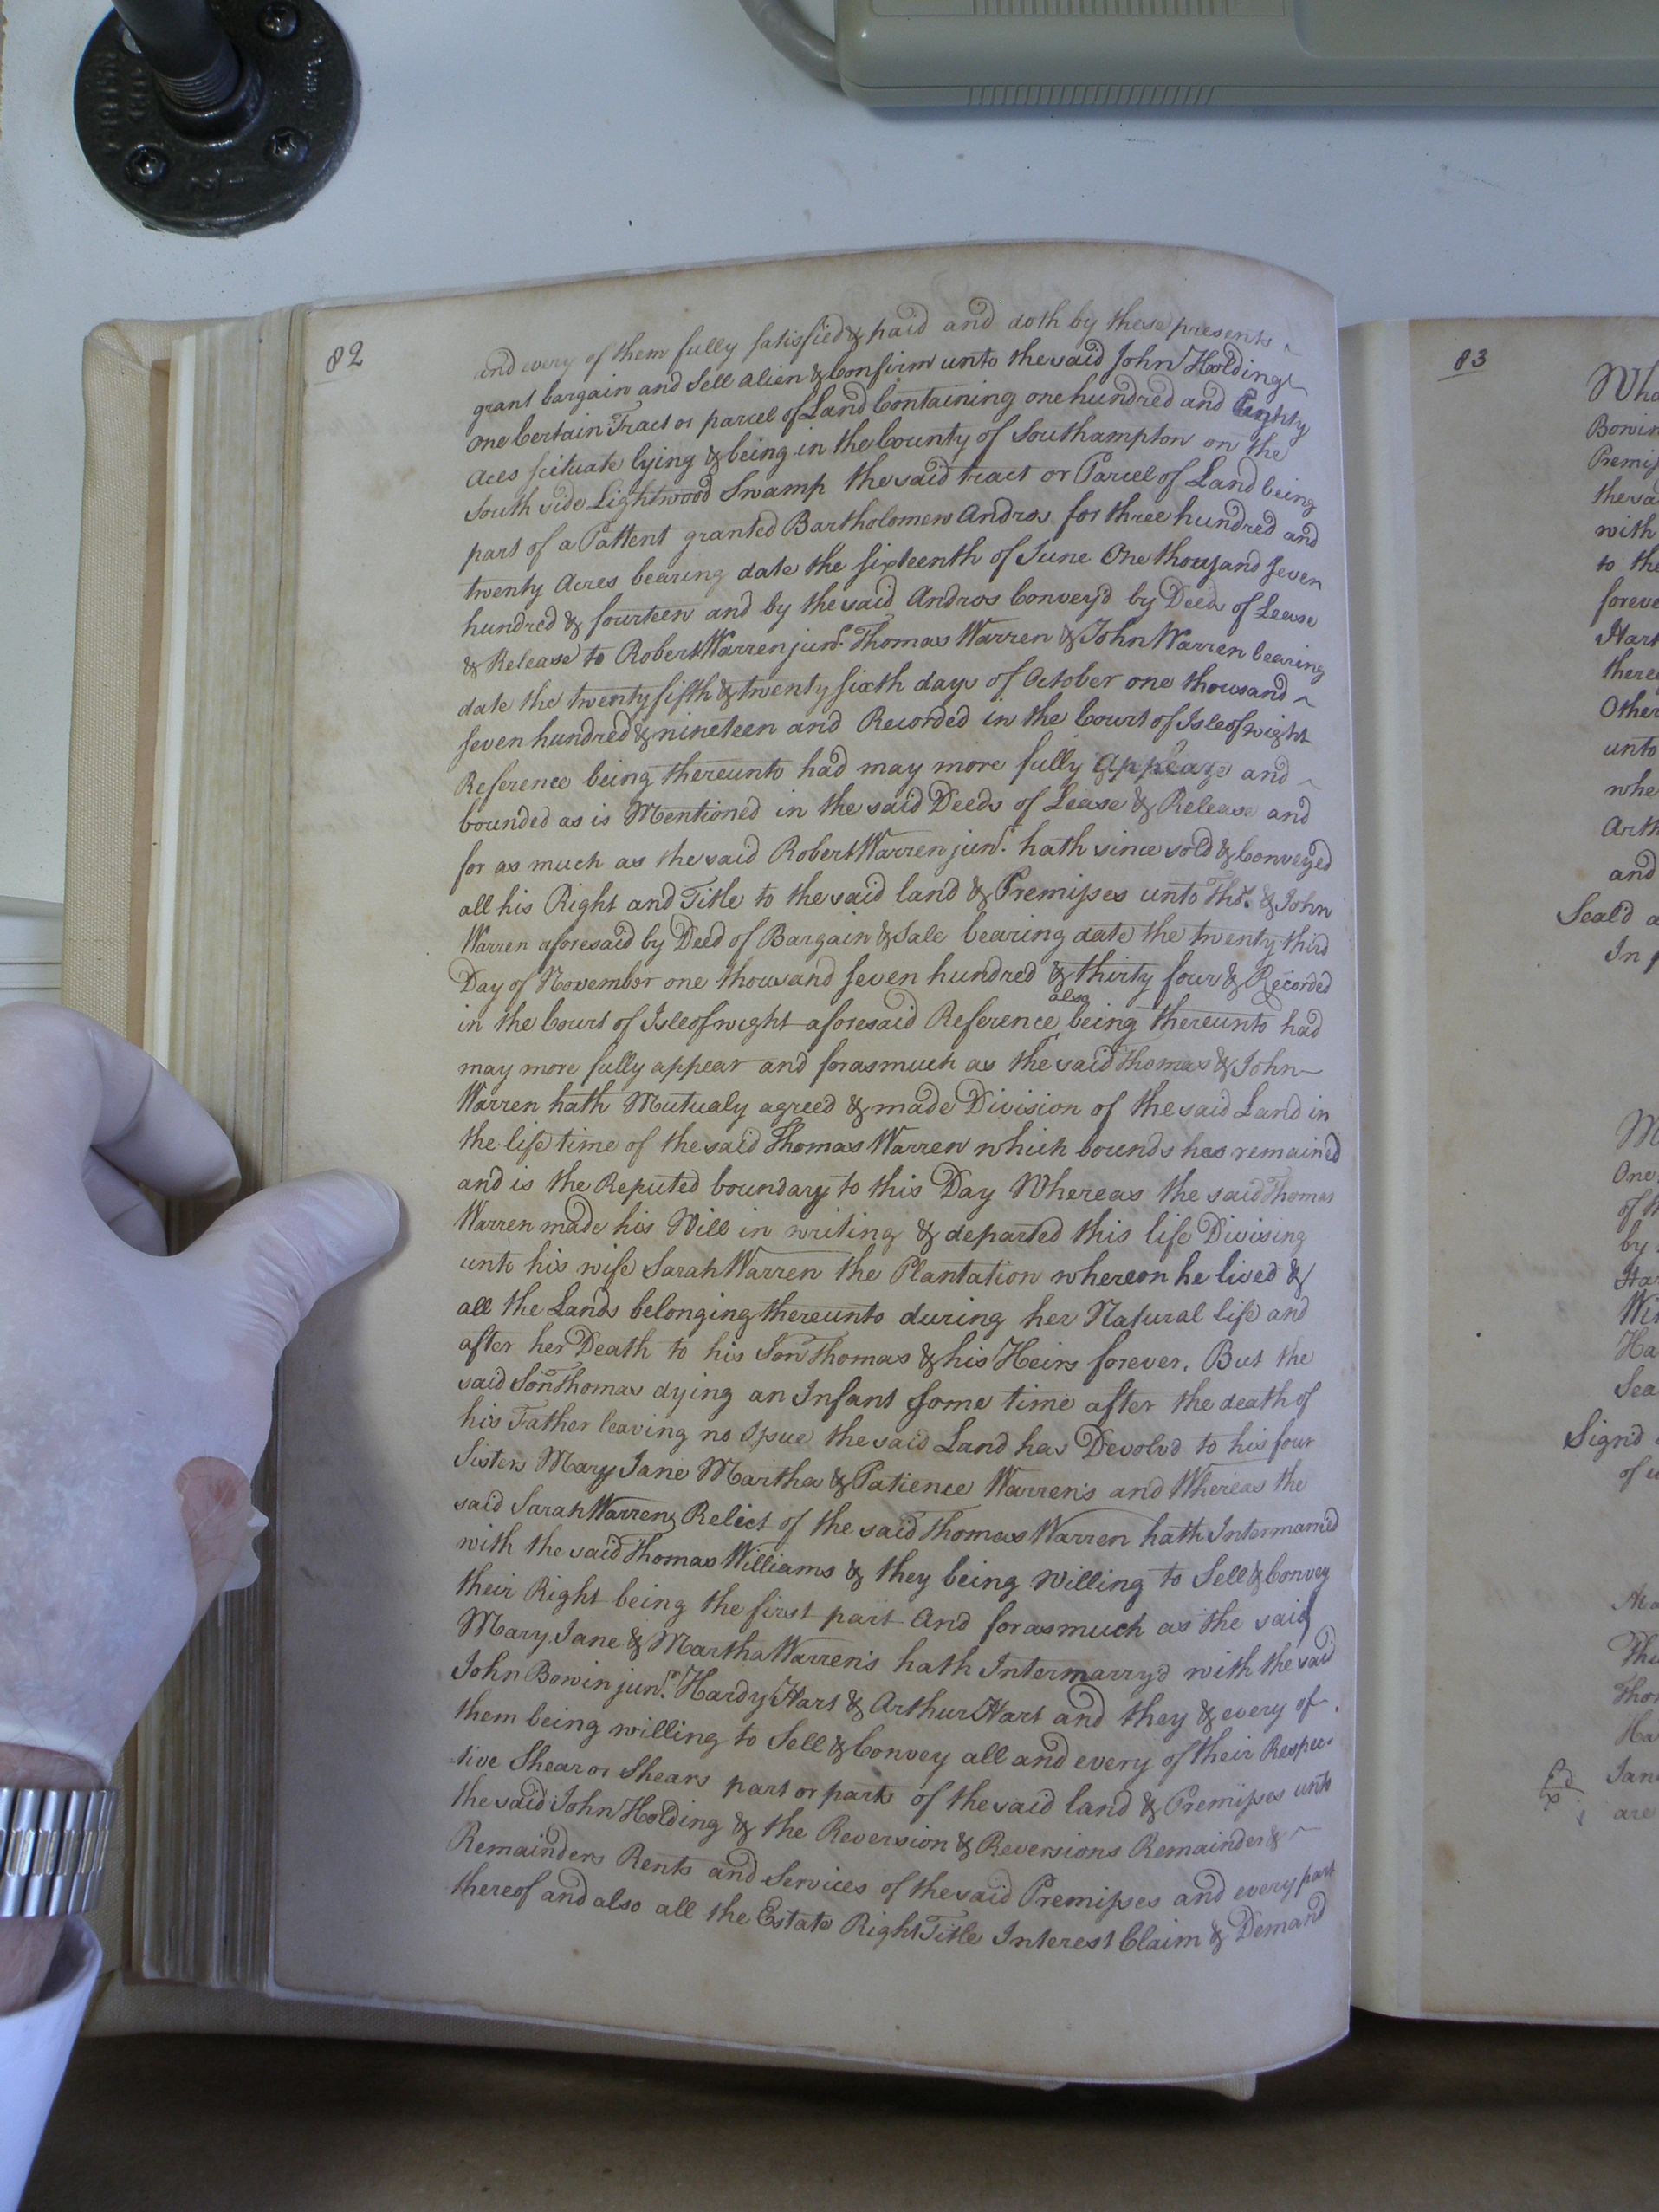 82
and every of them fully satisfied & paid and doth by these presents
grant bargain and Sell alien & Confirm unto the said John Holding
one Certain Tract or parcel of Land Containing one hundred and Eighty
Acres scituate lying & being in the County of Southampton on the
South side Lightwood Swamp the said tract or Parcel of Land being
part of a Pattent granted Bartholomew Andros for three hundred and
twenty Acres bearing date the sixteenth of June One thousand seven
hundred & fourteen and by the said Andros Convey'd by Deeds of Lease
& Release to Robert Warren junr. Thomas Warren & John Warren bearing
date the twenty fifth & twenty sixth days of October one thousand
seven hundred & nineteen and Recorded in the Court of Isle of wight
Reference being thereunto had may more fully appear and
bounded as is Mentioned in the said Deeds of Lease & Release and
for as much as the said Robert Warren junr. hath since sold & Conveyed
all his Right and Title to the said land & Premisses unto Thos. & John
Warren aforesaid by Deed of Bargain & Sale bearing date the twenty third
Day of November one thousand seven hundred & thirty four & Recorded
in the Court of Isle of wight aforesaid Reference also being thereunto had
may more fully appear and forasmuch as the said Thomas & John
Warren hath Mutualy agreed & made Division of the said Land in
the life time of the said Thomas Warren which bounds has remained
and is the Reputed boundary to this Day Whereas the said Thomas
Warren made his Will in writing & departed this life Divising
unto his wife Sarah Warren the Plantation whereon he lived &
all the Lands belonging thereunto during her Natural life and
after her Death to his Son Thomas & his Heirs forever. But the
said Son Thomas dying an Infant some time after the death of
his Father leaving no Issue the said Land has Devolvd to his four
Sisters Mary Jane Martha & Patience Warrens and Whereas the
said Sarah Warren Relict of the said Thomas Warren hath Intermarried
with the said Thomas Williams & they being Willing to Sell & Convey
their Right being the first part And forasmuch as the said
Mary Jane & Martha Warren's hath Intermarry'd with the said
John Bowin junr. Hardy Hart & Arthur Hart and they & every of
them being willing to Sell & Convey all and every of their Respec
tive Shear or Shears part or parts of the said land & Premisses unto
the said John Holding & the Reversion & Reversions Remainder &
Remainders Rents and Services of the said Premisses and every part
thereof and also all the Estate Right Title Interest Claim & Demand
83
Bowin
the sa
with
to the
foreve
Hart
there
Other
unto
whe
Arth
and
Seal'd a
In p
One
of th
by
Ha
Sea
Sign'd
of u
Tho
Ha
Jan
are